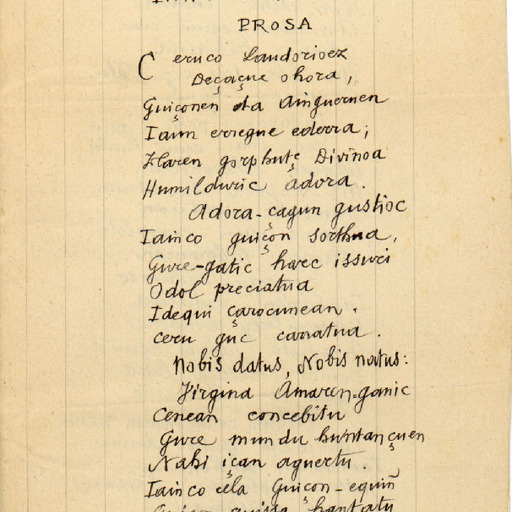 PROSA
Ceruco Laudorioez
Deçaçue ohora,
Guiçonen eta Ainguernen
Iaun erregue ederra;
Haren gorphutz Divinoa
Humilduric adora.
Adora-çagun gustioc
Iainco guiçon sorthua,
Gure-gatic harc issuri
Odol preciatua
Idequi çarocunean.
ceru guc carratua.
Nobis datus, Nobis natus:
Virgina Amaren-ganic
Cenean concebitu
Gure mundu huntançuen
Nahi içan aguertu.
Iainco cela Guiçon-equiñ